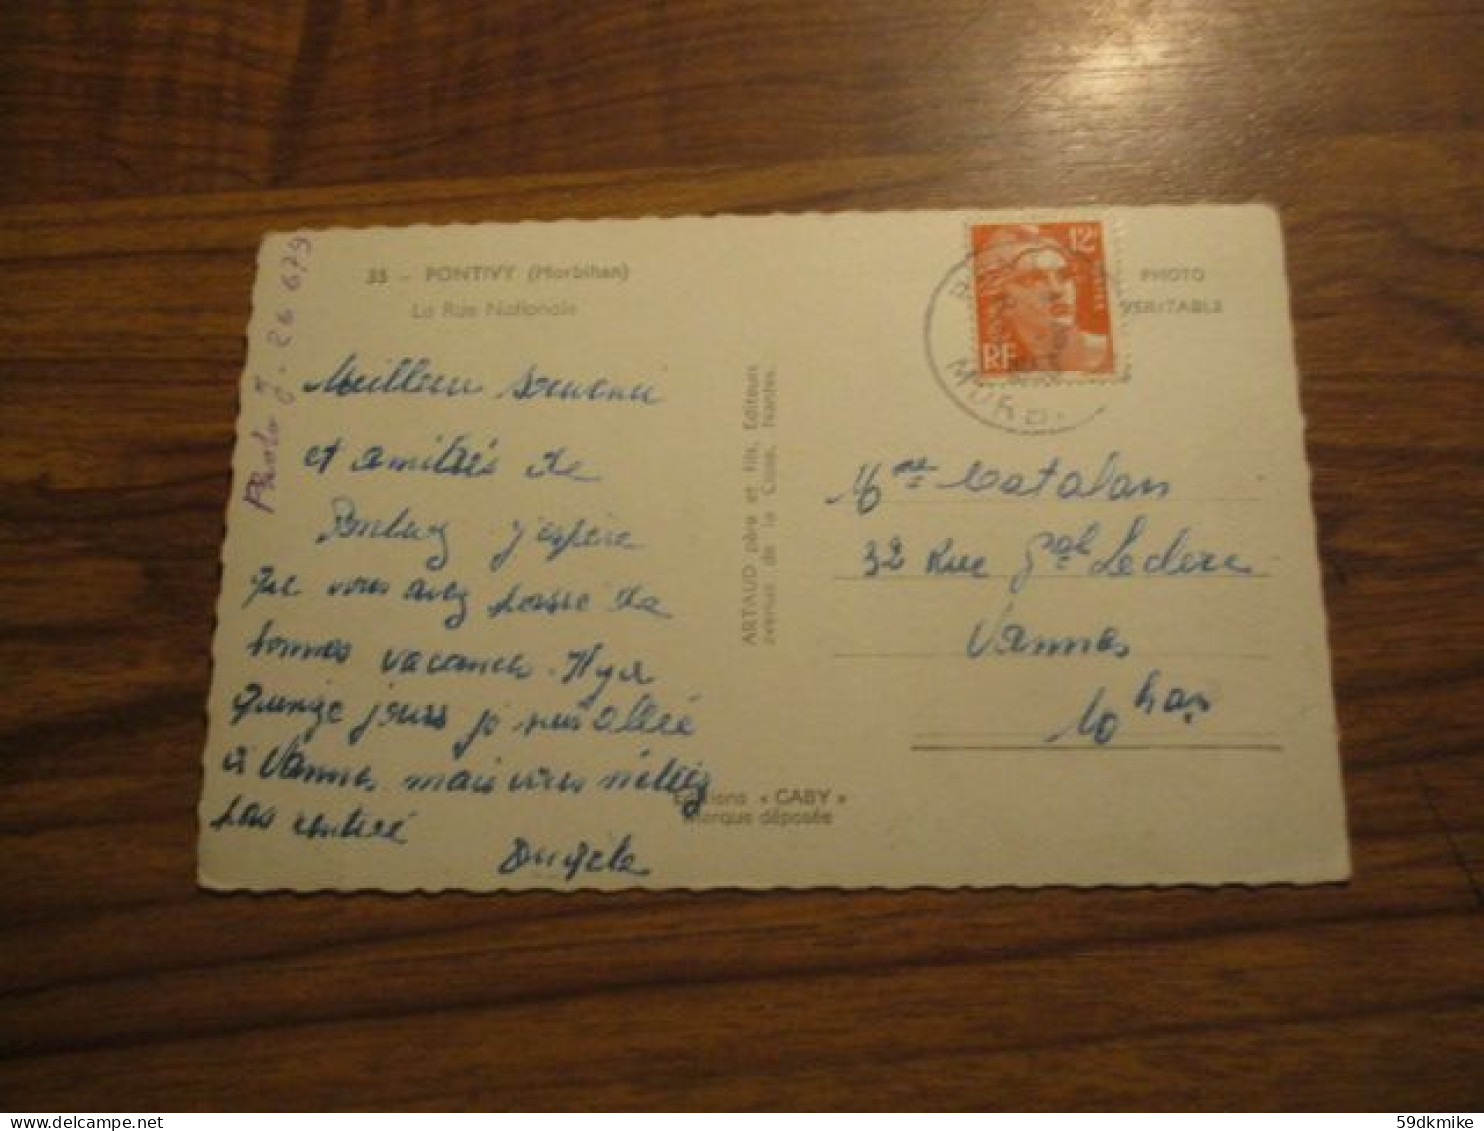 35 - PONTIVY (Morbihan)
La Rue Nationale
Photo J. 26 679
Meilleur souvenir
et amitiés de
j'espère
que vous avez passé de
bonnes vacances. Il y a
quinze jours je suis allée
à Vannes mais vous n'étiez
pas rentré
ARTAUD père et Fils, Editeurs
avenue de la Close, Nantes.
Editions « GABY »
Marque déposée
12F
RF
PHOTO
VERITABLE
MORB
Mme Catalan
32 Rue Gal Leclerc
Vannes
Mohan
59dkmike